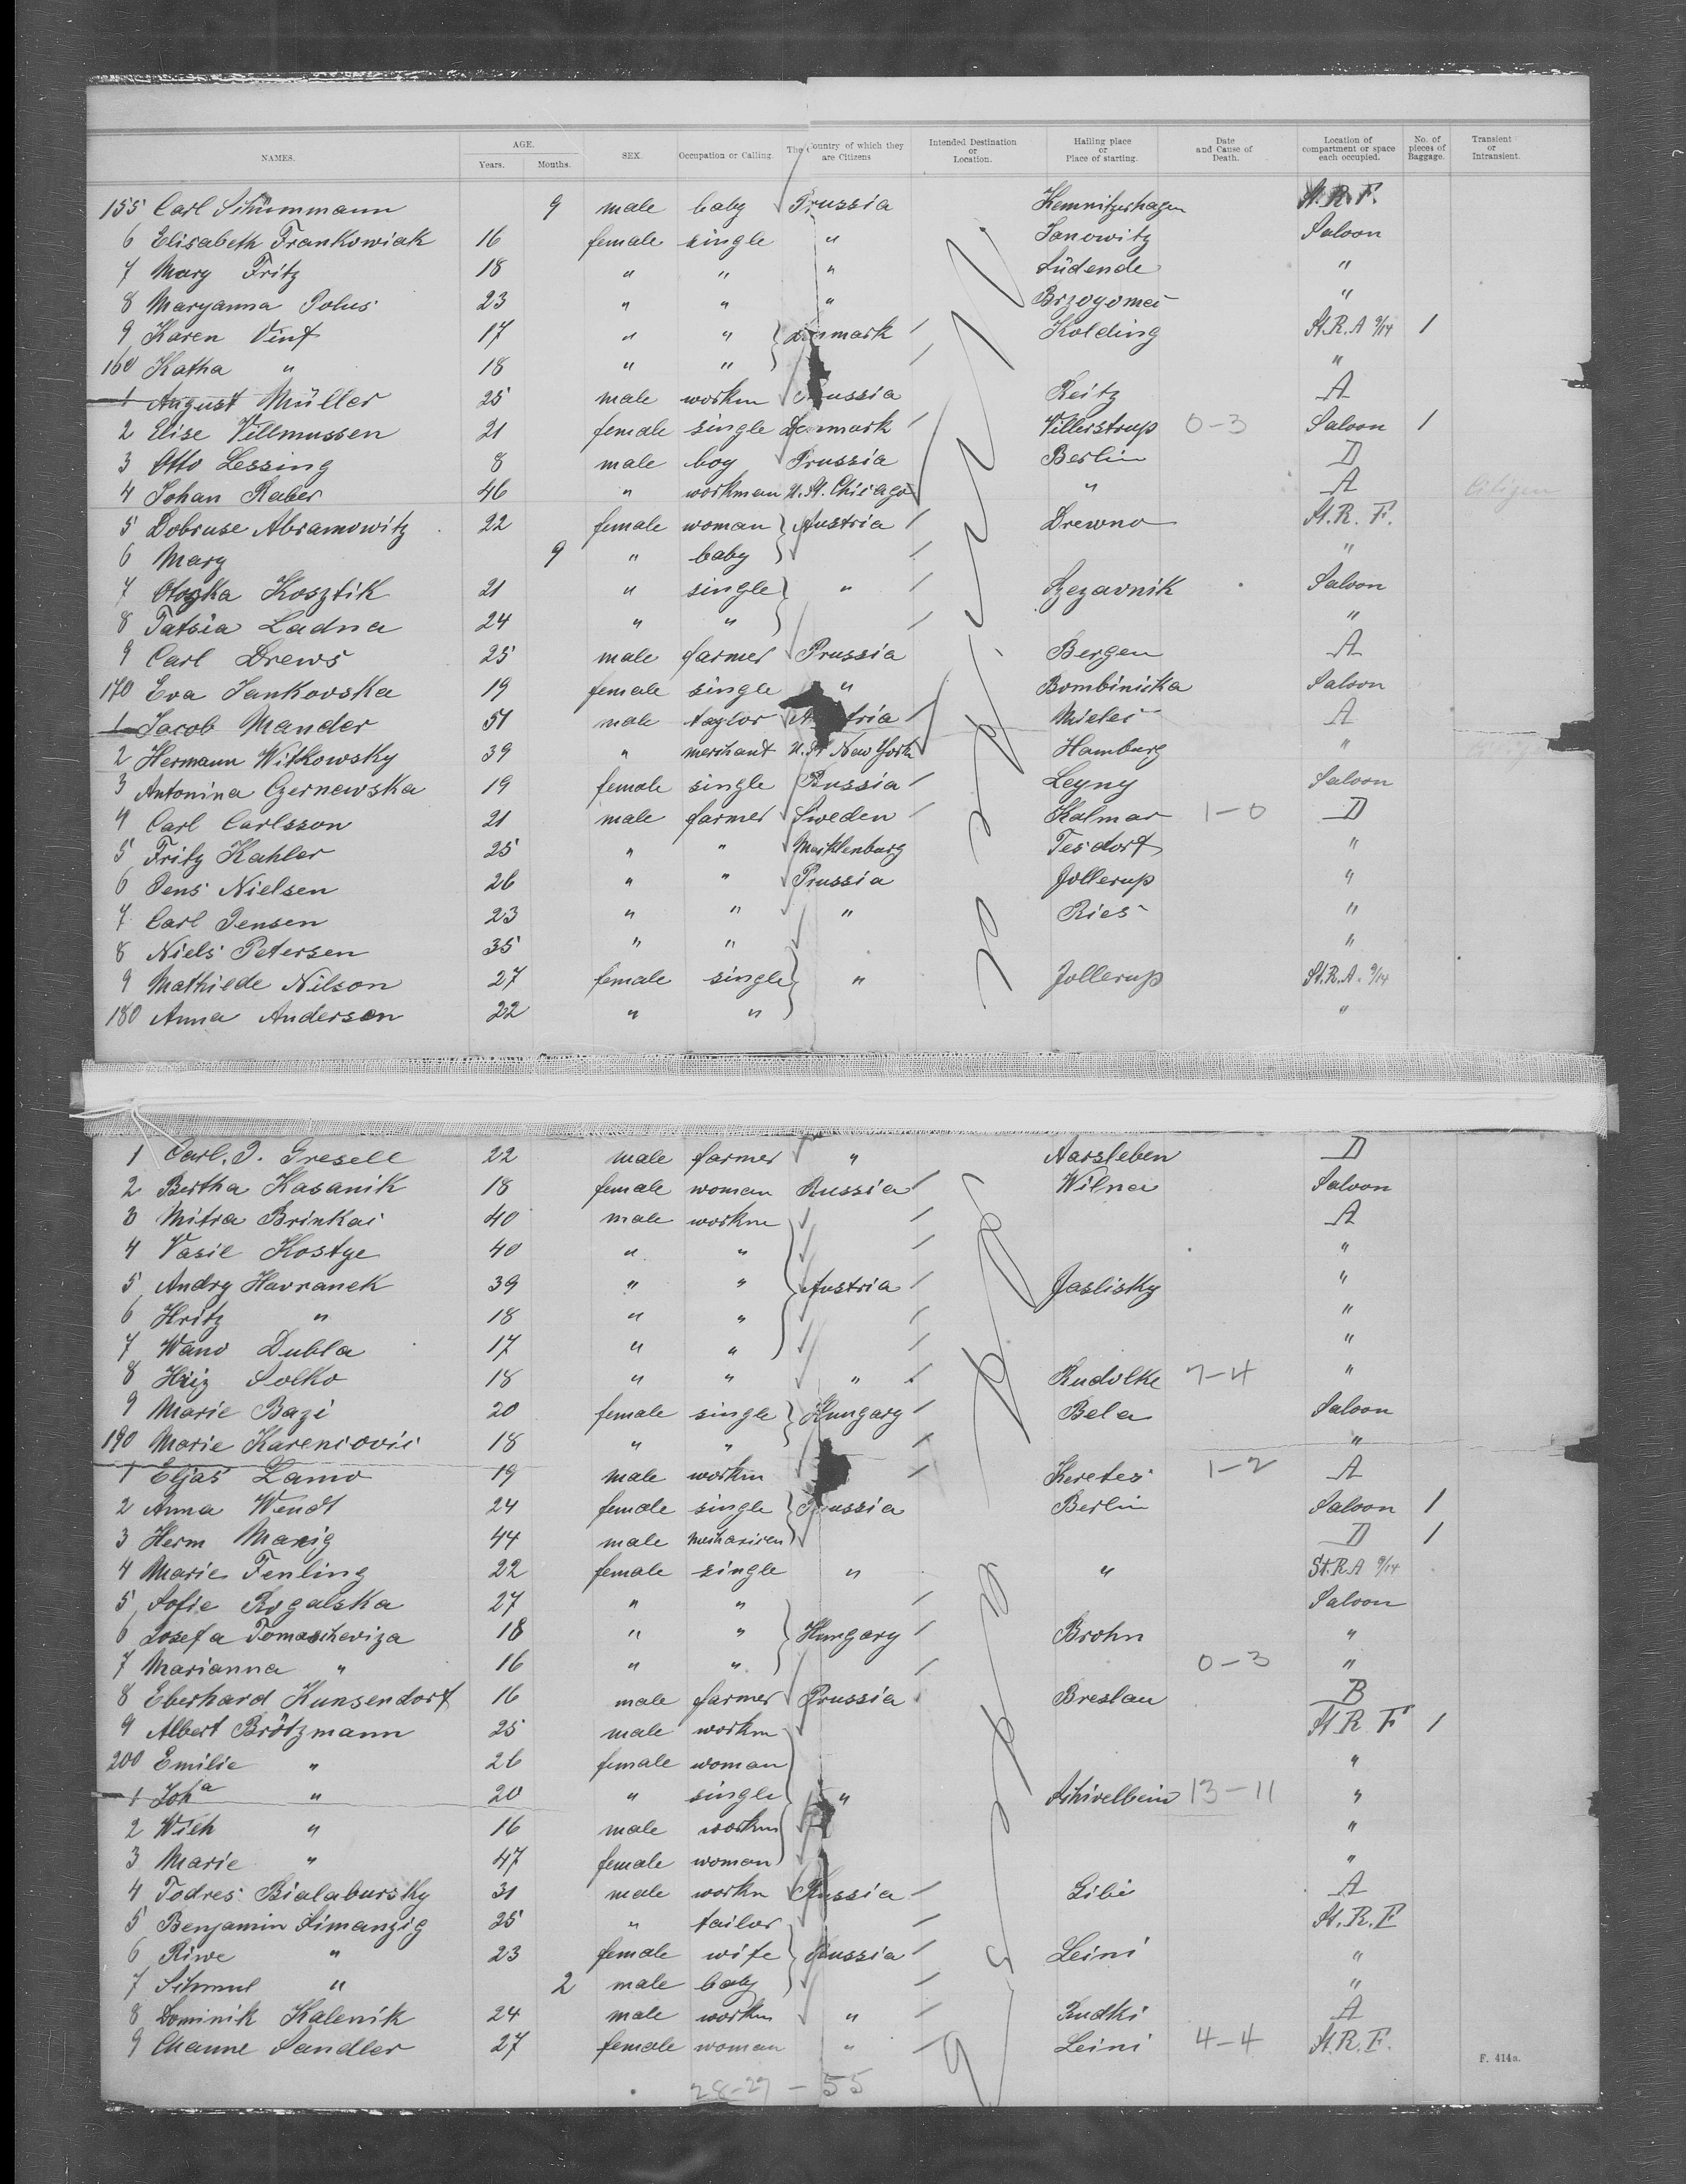 NAMES. AGE. Years. Months. SEX. Occupation or Calling. The Country of which they are Citizens Intended Destination or Location. Hailing place or Place of starting. Date and Cause of Death. Location of compartment or space each occupied. No. of pieces of Baggage. Transient or Intransient.
155 Carl Schümmann 9 male baby Prussia Kemnitzerhagen St. R. F.
6 Elisabeth Frankowiak 16 female single " Janowitz Saloon
7 Mary Fritz 18 " " " Lüdende "
8 Maryanna Polus 23 " " " Brzogomei "
9 Karen Vinf 17 " " Denmark Kolding St. R. A 9/14 1
160 Katha " 18 " " "
1 August Müller 25 male workm Prussia Reitz A
2 Elise Villmussen 21 female single Denmark Villerstrup 0-3 Saloon 1
3 Otto Lessing 8 male boy Prussia Berlin D
4 Johan Raber 46 " workman U. St. Chicago " A Citizen
5 Dobruse Abramowitz 22 female woman Austria Drewno St. R. F.
6 Mary 9 " baby "
7 Otozka Kosztik 21 " single " Szezavnik Saloon
8 Tatsia Ladna 24 " " "
9 Carl Drews 25 male farmer Prussia Bergen A
170 Eva Jankovska 19 female single " Bombiniska Saloon
1 Jacob Mander 51 male taylor Austria Mielei A
2 Hermann Witkowsky 39 " merchant U. St New York Hamburg "
3 Antonina Czernewska 19 female single Russia Leyny Saloon
4 Carl Carlsson 21 male farmer Sweden Kalmar 1-0 D
5 Fritz Kahler 25 " " Mecklenburg Tesdorf "
6 Jens Nielsen 26 " " Prussia Jollerup "
7 Carl Jensen 23 " " " Ries "
8 Niels Petersen 35 " " "
9 Mathilde Nilson 27 female single " Jollerup St. R. A. 9/14
180 Anna Anderson 22 " " "
1 Carl. J. Gresell 22 male farmer " Aarsleben D
2 Bertha Kasanik 18 female woman Russia Wilna Saloon
3 Mitra Brinkai 40 male workm A
4 Vasil Kostye 40 " " "
5 Andry Havranek 39 " " Austria Jaslisky "
6 Hritz " 18 " " "
7 Wano Dubla 17 " " "
8 Hriz Solko 18 " " " Rudolke 7-4 "
9 Marie Bazi 20 female single Hungary Bela Saloon
190 Marie Karencovic 18 " " "
1 Eljas Lamo 19 male workm Keretes 1-2 A
2 Anna Wendt 24 female single Prussia Berlin Saloon 1
3 Herm Marzig 44 male D 1
4 Marie Fenling 22 female single " " St. R. A 9/14
5 Sofie Rogalska 27 " " Saloon
6 Josefa Tomascheviza 18 " " Hungary Brohn "
7 Marianna " 16 " " 0-3 "
8 Eberhard Kunsendorf 16 male farmer Prussia Breslau B
9 Albert Brötzmann 25 male workm St R. F 1
200 Emilie " 26 female woman "
1 Joha " 20 " single " Schivelbein 13-11 "
2 Wilh " 16 male workm "
3 Marie " 47 female woman "
4 Todres Bialabursky 31 male workm Russia Libi A
5 Benjamin Simanzig 25 " tailor St. R. F
6 Riwe " 23 female wife Russia Leini "
7 Schmul " 2 male baby "
8 Dominik Kalenik 24 male workm " Rudki A
9 Channe Sandler 27 female woman " Leini 4-4 St. R. F.
28-27-55
F. 414a.